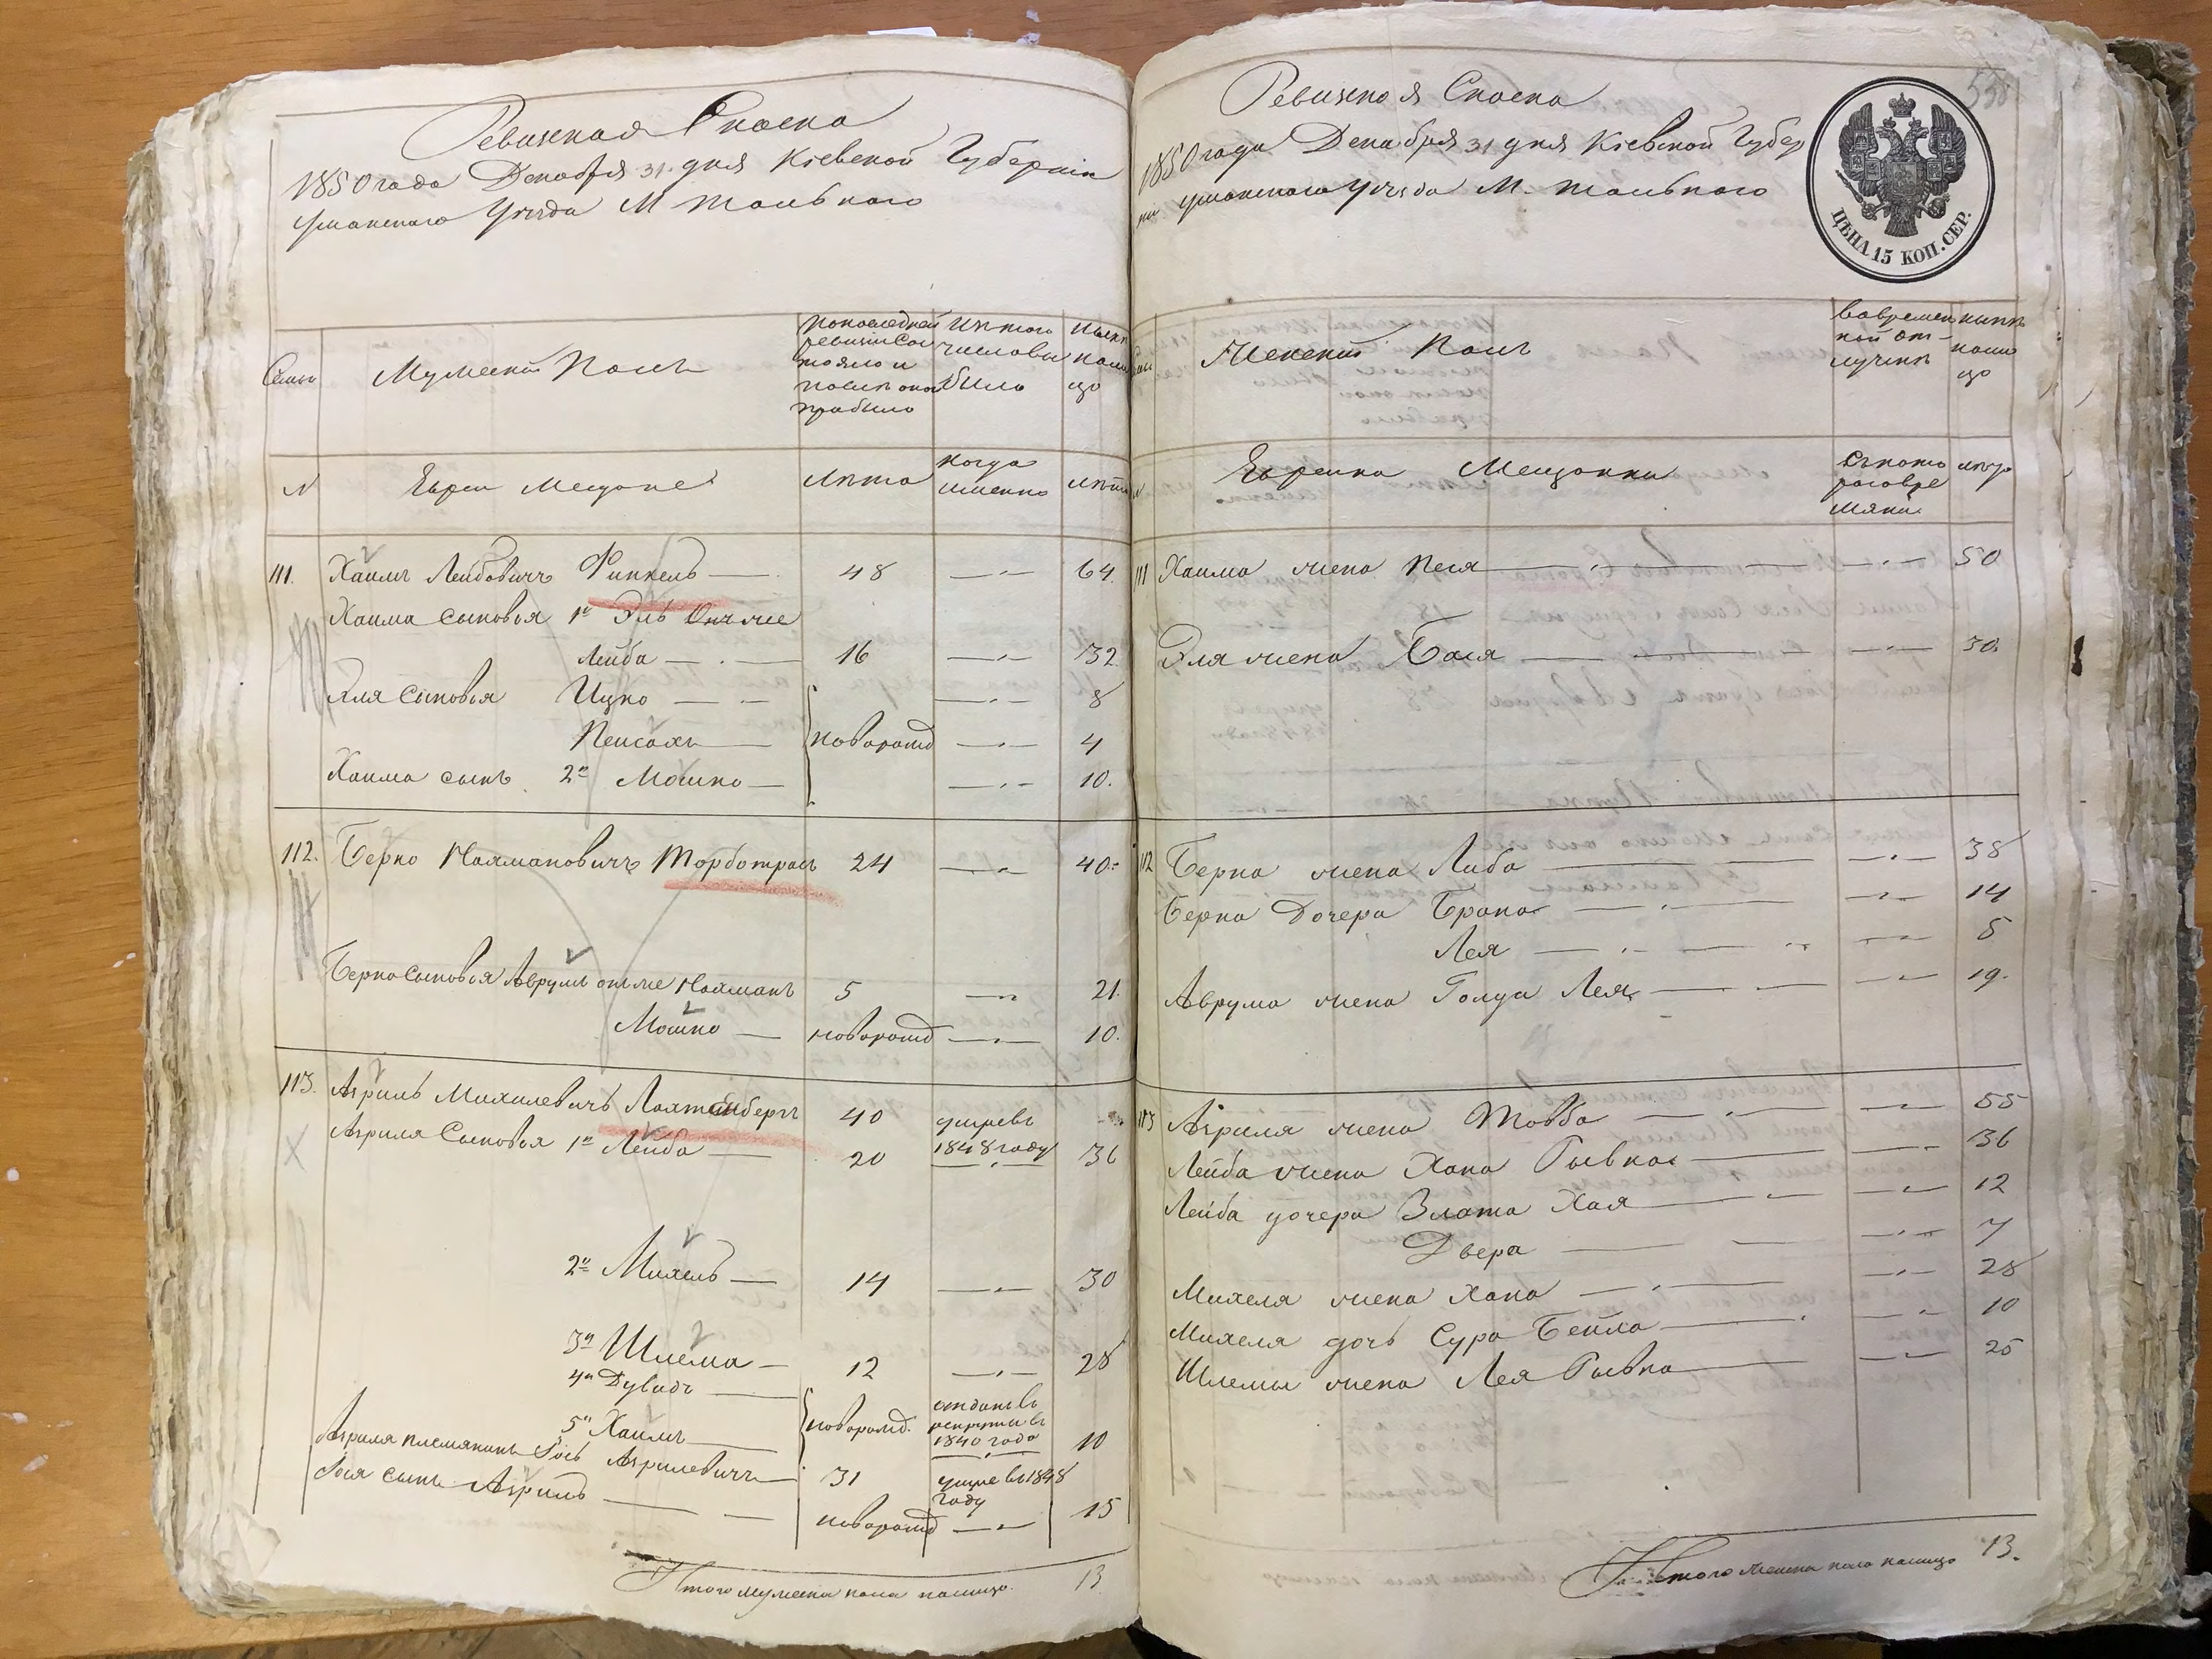 Ревизская Сказка
1850 года Декабря 31 дня Кіевской Губерніи
Уманского Уѣзда М Тального
Семьи
Мужеский Полъ
По последней ревизіи состояло и после оной прибыло
Изъ того числа выбыло
Ныне на лицо
N
Евреи Мещане
Лѣта
Когда именно
Лѣта
111. Хаимъ Лейбовичъ Финкель 48 64.
Хаима сыновья 1й Эль онъ же
Лейба 16 32
Эля сыновья Ицко 8
Пейсахъ новорожд 4
Хаима сынъ 2й Мошко 10.
112. Берко Нахмановичъ Торботрасъ 24 40.
Берка сыновья Аврумъ онъ же Нахманъ 5 21.
Мошко новорожд 10.
113. Азриль Михилевичъ Лахтенбергъ 40 умре въ 1848 году
Азриля Сыновья 1й Лейба 20 36
2й Михель 14 30
3й Шлема 12 28
4й Дувидъ
новорожд. отданъ въ рекруты въ 1840 года
5й Хаимъ 10
Азриля племяникъ Іось Азрилевичъ 31 умре въ 1848 году
Іося сынъ Азриль новорожд 15
Итого мужеска пола налицо. 13
Ревизская Сказка
1850 года Декабря 31 дня Кіевской Губер
ніи Уманского Уѣзда М. Тального
ЦѢНА 15 КОП. СЕР.
Женский Полъ
Во временной отлучке
Ныне на лицо
N
Еврейки Мещанки
Съ которого времяни
лѣта
111 Хаима жена Песя 50
Эля жена Бася 30.
112 Берка жена Либа 38
Берка Дочери Брана 14
Лея 5
Аврума жена Голда Лея 19.
113 Азриля жена Товба 55
Лейба жена Хана Рывка 36
Лейба дочери Злата Хая 12
Двера 7
Михеля жена Хана 28
Михеля дочь Сура Бейла 10
Шлемы жена Лея Рывка 25
Итого Женска пола налицо 13.